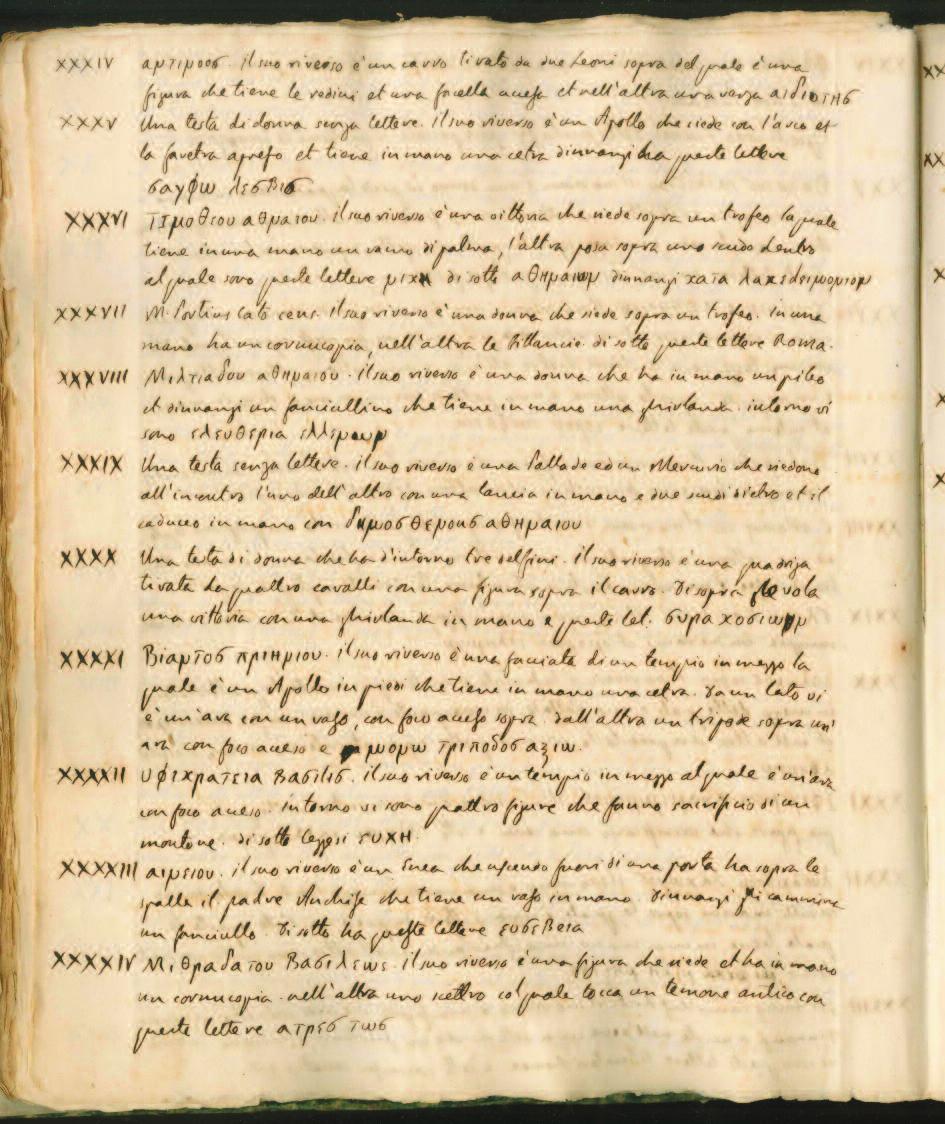 XXXIV αρτιμοος. il suo riverso è un carro tirato da due Leoni sopra del quale è una
figura che tiene le redini et una facella accesa et nell'altra una verga αιδιοτης
XXXV Una testa di donna senza lettere. il suo riverso è un Apollo che siede con l'arco et
la faretra apresso et tiene in mano una cetra dinnanzi ha queste lettere
σαγφω λεσβις
XXXVI Τιμοθεου αθμαιου. il suo riverso è una vittoria che siede sopra un trofeo la quale
tiene in una mano un ramo di palma, l'altra posa sopra uno scudo dentro
al quale sono queste lettere μιχη di sotto αθημαιωμ dinnanzi χατα λαχεδειμομιομ
XXXVII M. Portius Cato cens. il suo riverso è una donna che siede sopra un trofeo. in una
mano ha un cornucopia, nell'altra le Billancie. di sotto queste lettere Roma.
XXXVIII Μιλτιαδου αθημαιου. il suo riverso è una donna che ha in mano un pileo
et dinnanzi un fanciullino che tiene in mano una ghirlanda. intorno vi
sono ελευθερια ελλεμωμ
XXXIX Una testa senza lettere. il suo riverso è una Pallade ed un Mercurio che siedono
all'incontro l'uno dell'altro con una lancia in mano e due scudi dietro et il
caduceo in mano con δημοσθεμους αθημαιου
XXXX Una testa di donna che ha d'intorno tre delfini. il suo riverso è una quadriga
tirata da quattro cavalli con una figura sopra il carro. Di sopra le vola
una vittoria con una ghirlanda in mano e queste let: συρα χοσιωμ
XXXXI Βιαμτος πριημιου. il suo riverso è una facciata di un tempio in mezzo la
quale è un Apollo in piedi che tiene in mano una cetra. Da un lato vi
è un'ara con un vaso, con foco acceso sopra. dall'altra un tripode sopra un'
ara con foco acceso e μομω τριποδος αξιω.
XXXXII υφιχρατεια Βασιλις. il suo riverso è un tempio in mezzo al quale è un'ara
con foco acceso. intorno vi sono quattro figure che fanno sacrificio di un
montone. di sotto leggesi ευχη.
XXXXIII αιμειου. il suo riverso è un Enea che uscendo fuori di una porta ha sopra le
spalle il padre Anchise che tiene un vaso in mano. Dinnanzi gli cammina
un fanciullo. Di sotto ha queste lettere ευσεβεια
XXXXIV Μιθραδατου Βασιλεως. il suo riverso è una figura che siede et ha in mano
un cornucopia. nell'altra uno scettro col quale tocca un temone antico con
queste lettere ατρες τως